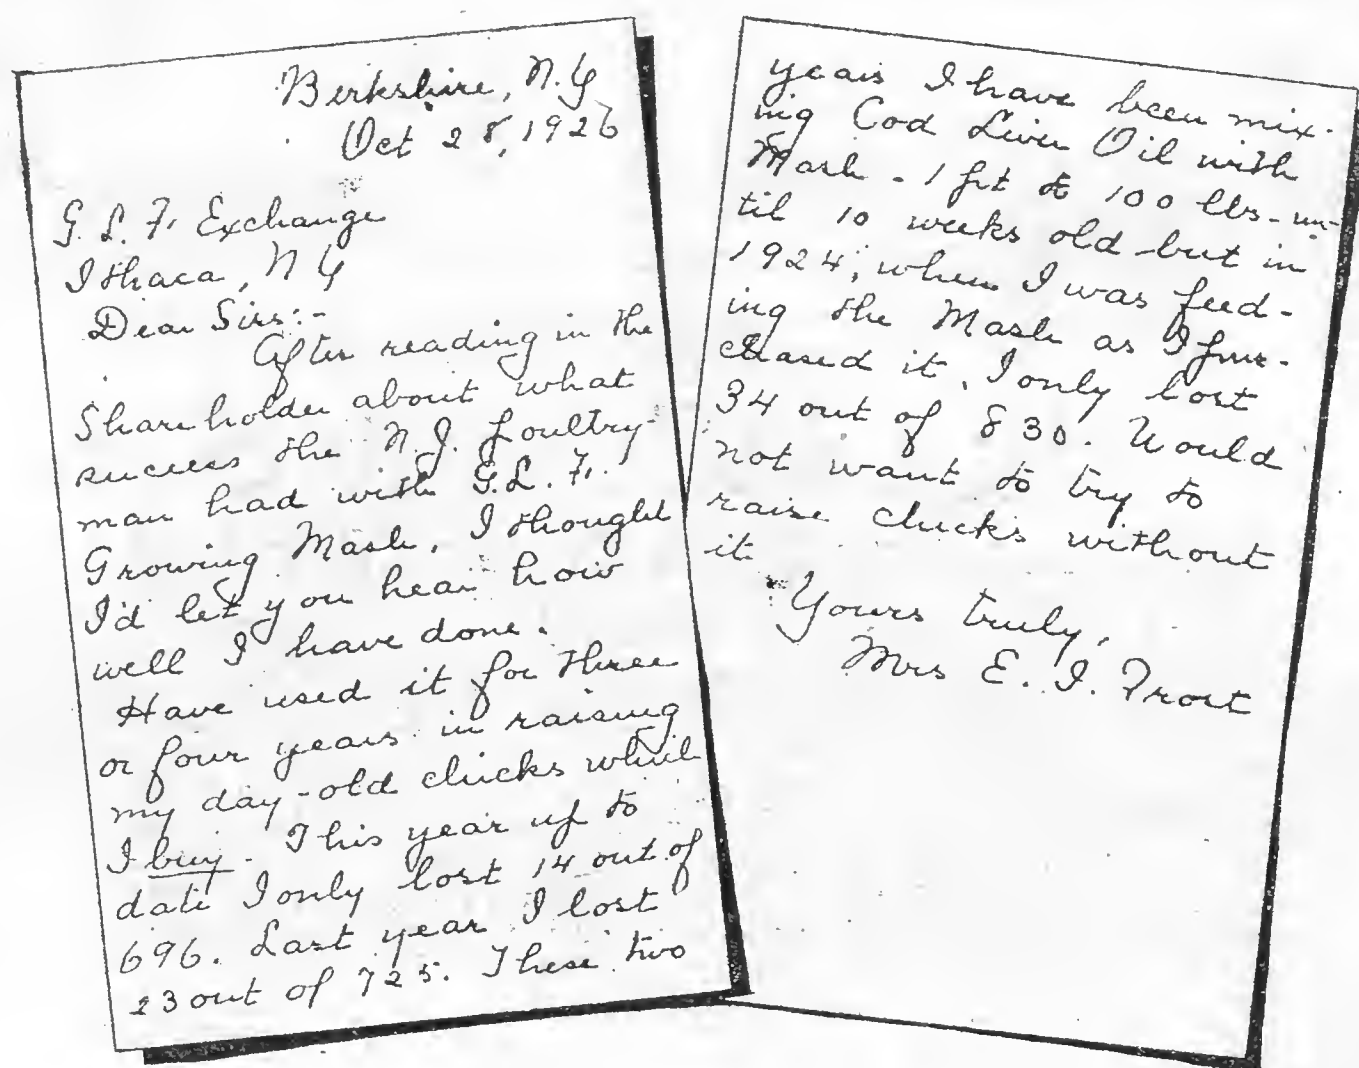 Berkshire, N.Y
Oct 28, 1926
G.L.F. Exchange
Ithaca, N Y
Dear Sirs:-
After reading in the
Shareholder about what
success the N.J. poultry-
man had with G.L.F.
Growing Mash, I thought
I'd let you hear how
well I have done.
Have used it for three
or four years in raising
my day-old chicks which
I buy. This year up to
date I only lost 14 out of
696. Last year I lost
23 out of 725. These two
years I have been mix-
ing Cod Liver Oil with
Mash - 1 pt to 100 lbs - un-
til 10 weeks old but in
1924, when I was feed-
ing the Mash as I pur-
chased it, I only lost
34 out of 830. Would
not want to try to
raise chicks without
it
Yours truly,
Mrs E. I. Frost